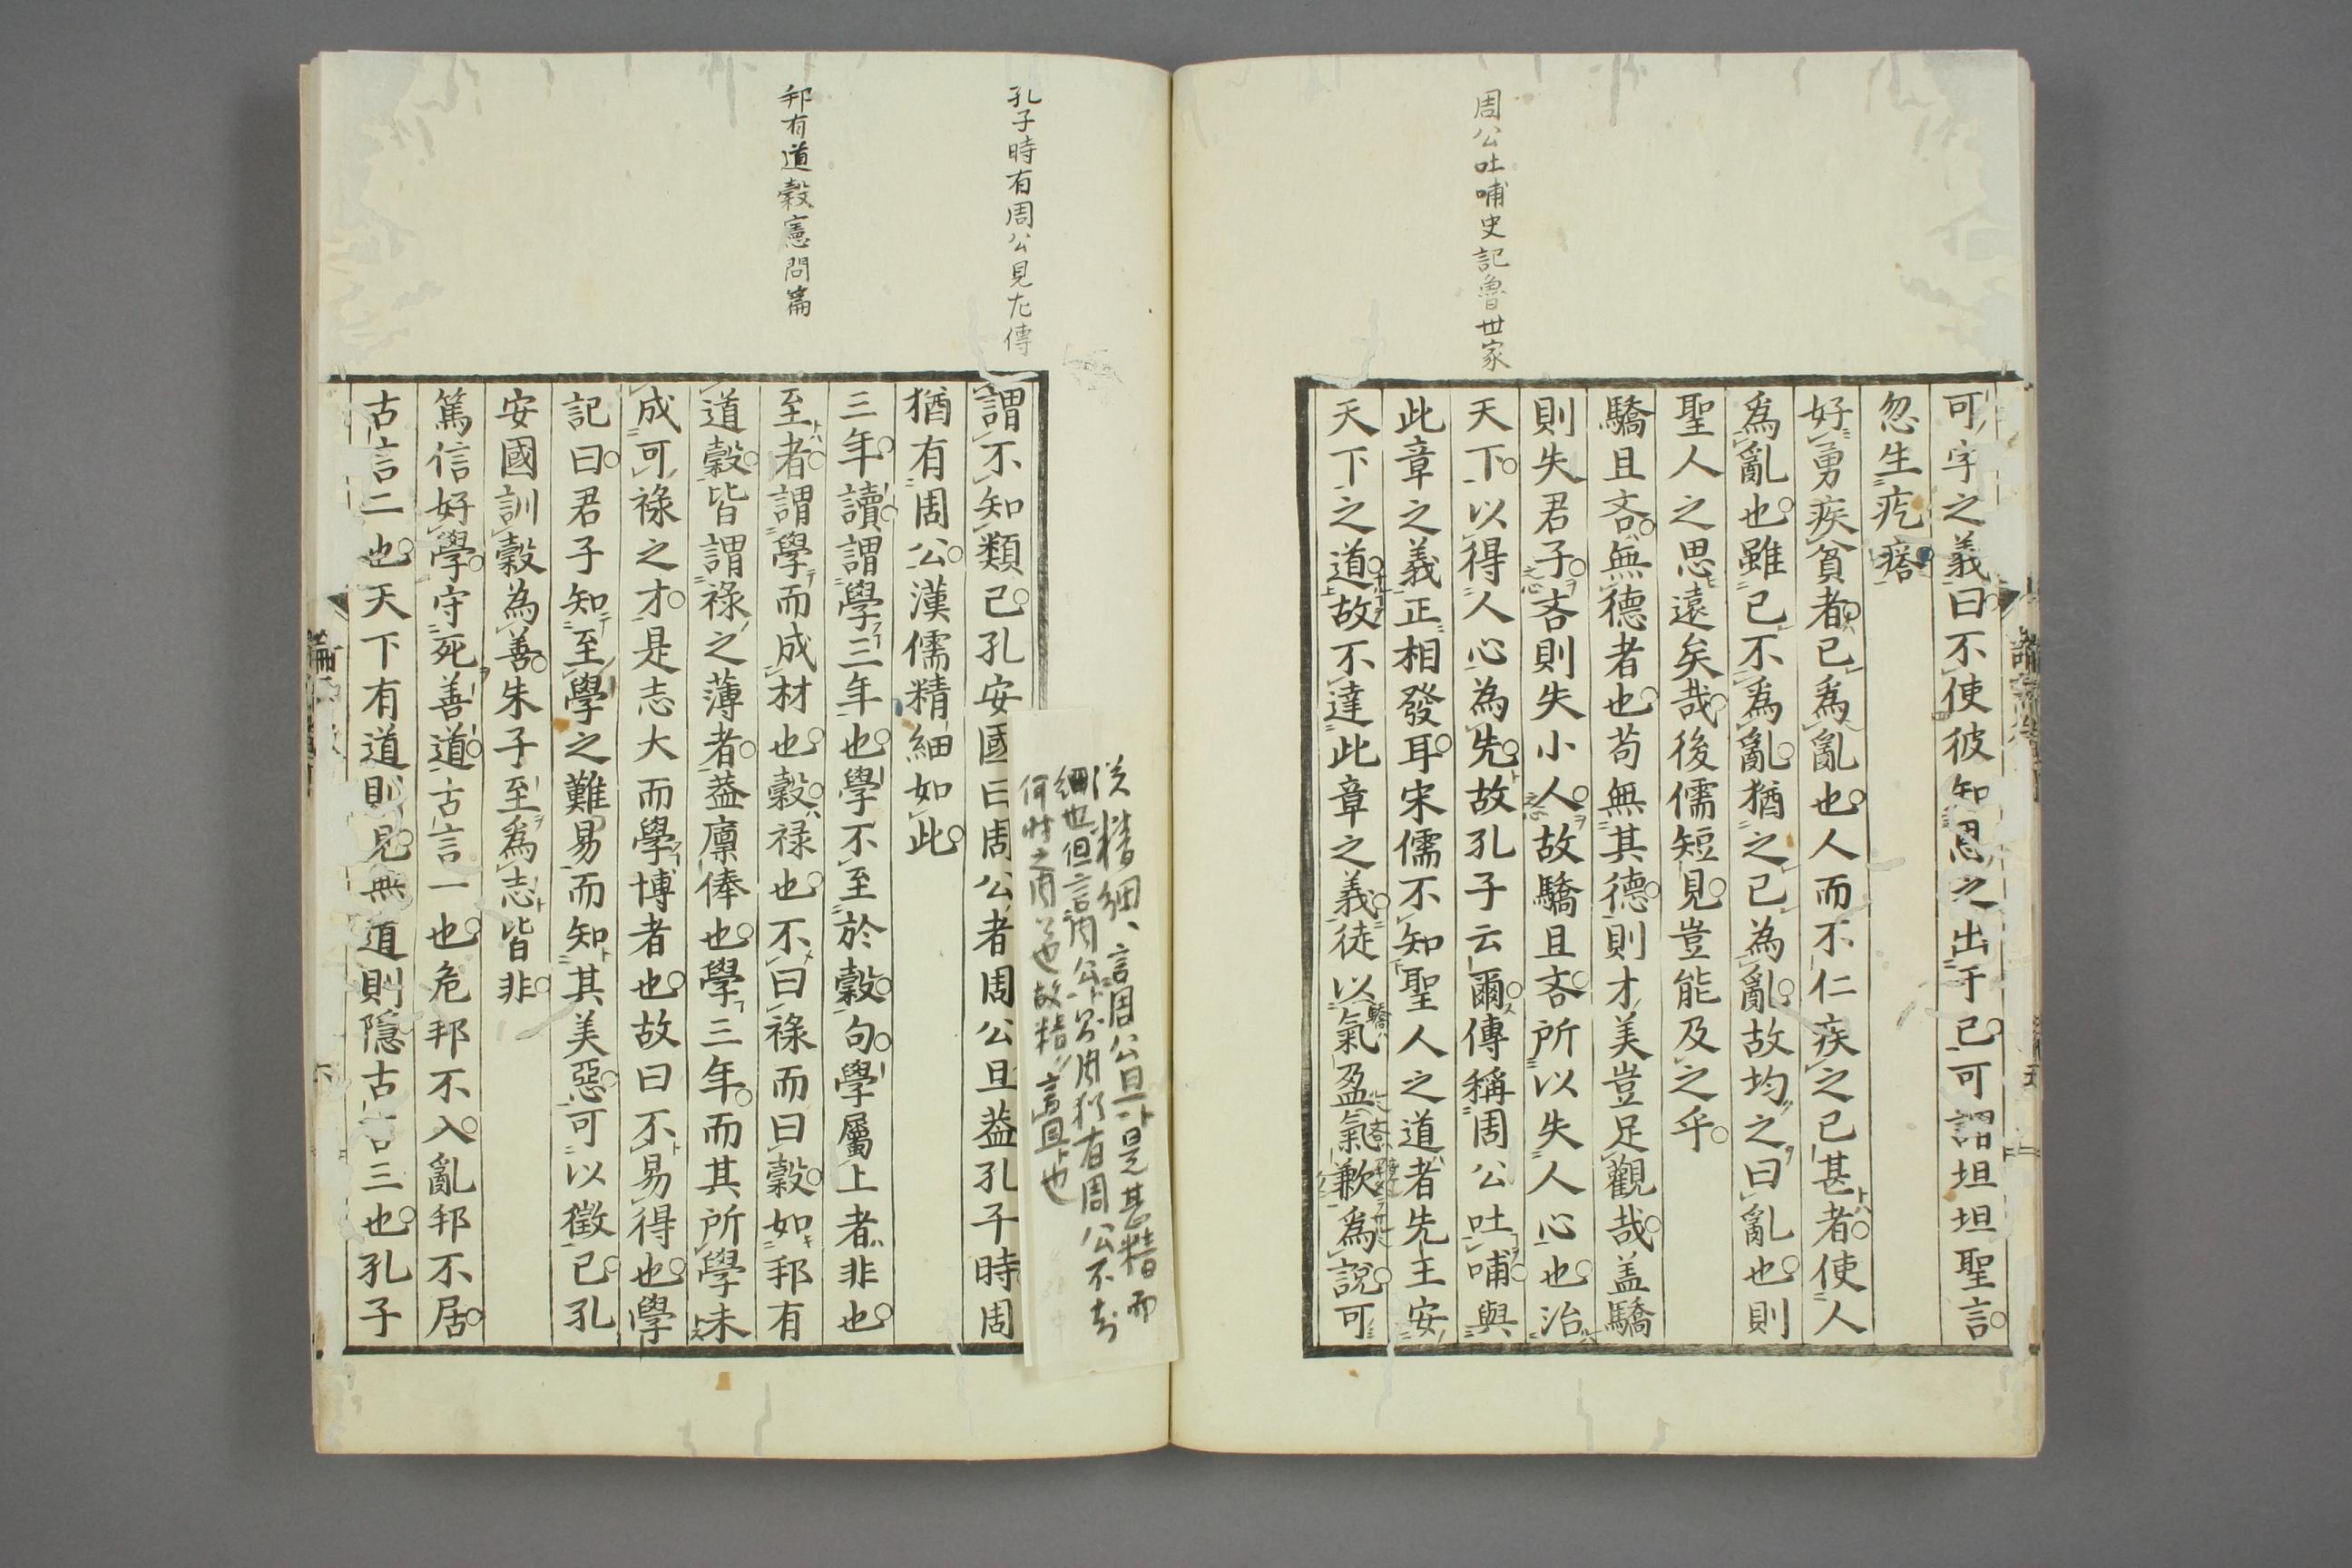 周公吐哺史記魯世家
可字之義曰不使彼知恩之出于己可謂坦坦聖言
忽生疙瘩
好勇疾貧者己爲亂也人而不仁疾之已甚者使人
爲亂也雖己不爲亂猶之己為亂故均之曰亂也則
聖人之思遠矣哉後儒短見豈能及之乎
驕且吝無德者也苟無其德則才美豈足觀哉盖驕
則失君子吝則失小人故驕且吝所以失人心也治
天下以得人心為先故孔子云爾傳稱周公吐哺與
此章之義正相發耳宋儒不知聖人之道者先王安
天下之道故不達此章之義徒以氣盈氣歉爲說可
孔子時有周公見左傳
邦有道穀憲問篇
謂不知類已孔安國曰周公者周公旦葢孔子時周
猶有周公漢儒精細如此
三年讀謂學三年也學不至於穀句學屬上者非也
至者謂學而成材也穀祿也不曰祿而曰穀如邦有
道穀皆謂祿之薄者葢廩俸也學三年而其所學未
成可祿之才是志大而學博者也故曰不易得也學
記曰君子知至學之難易而知其美惡可以徵已孔
安國訓穀為善朱子至爲志皆非
篤信好學守死善道古言一也危邦不入亂邦不居
古言二也天下有道則見無道則隱古言三也孔子
言周公旦是甚精而